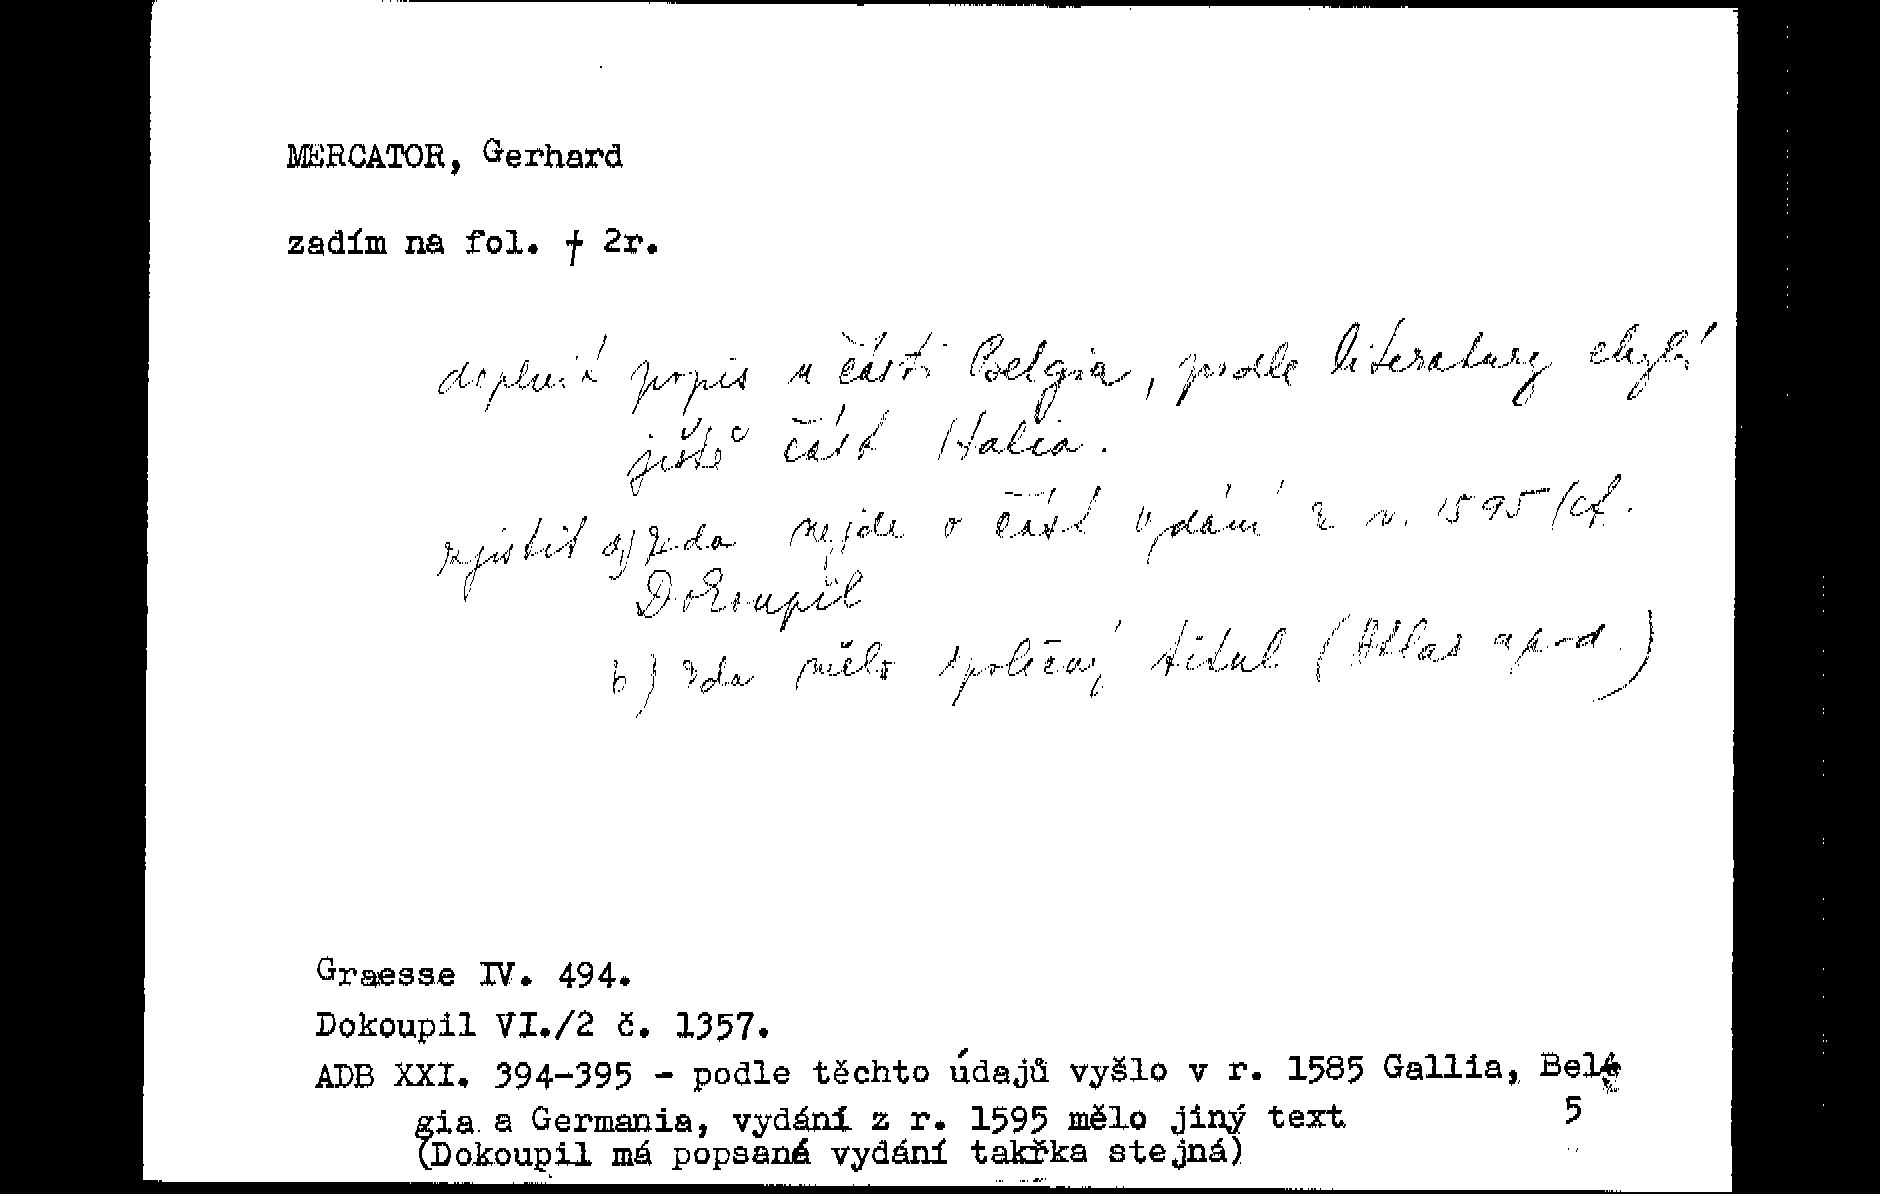 MERCATOR, Gerhard
zadím na fol. † 2r.
doplnit popis u části Belgia, podle literatury chybí
ještě část Italia.
zjistit a) zda nejde o část vydání z r. 1595 (cf.
Dokoupil
b) zda mělo společný titul (Atlas apod.)
Graesse IV. 494.
Dokoupil VI./2 č. 1357.
ADB XXI. 394-395 - podle těchto údajů vyšlo v r. 1585 Gallia, Bel-
gia a Germania, vydání z r. 1595 mělo jiný text
5
(Dokoupil má popsaná vydání takřka stejná)